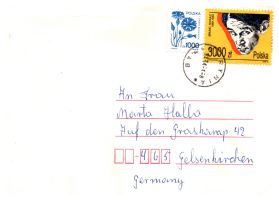 POLSKA
1000 zł
3000 zł
Polska
An Frau
Marta Halla
Auf den Graskamp 42
465 Gelsenkirchen
Germany